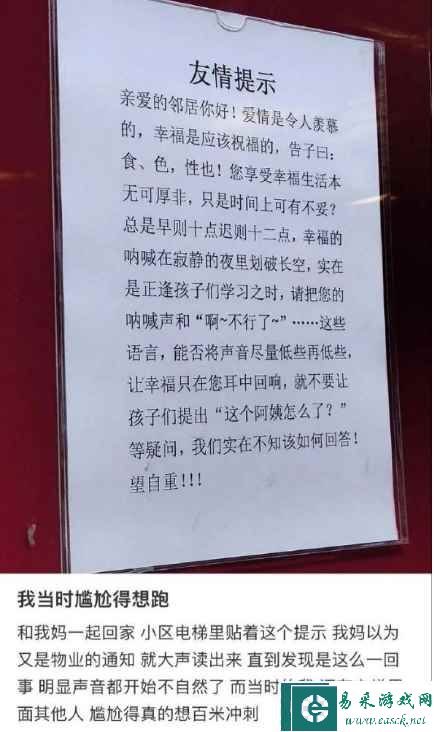 友情提示
亲爱的邻居你好！爱情是令人羡慕
的，幸福是应该祝福的，告子曰：
食、色，性也！您享受幸福生活本
无可厚非，只是时间上可有不妥？
总是早则十点迟则十二点，幸福的
呐喊在寂静的夜里划破长空，实在
是正逢孩子们学习之时，请把您的
呐喊声和“啊~不行了~”……这些
语言，能否将声音尽量低些再低些，
让幸福只在您耳中回响，就不要让
孩子们提出“这个阿姨怎么了？”
等疑问，我们实在不知该如何回答！
望自重！！！
我当时尴尬得想跑
和我妈一起回家 小区电梯里贴着这个提示 我妈以为
又是物业的通知 就大声读出来 直到发现是这么一回
事 明显声音都开始不自然了 而当时
面其他人 尴尬得真的想百米冲刺
易采游戏网
www.easck.com